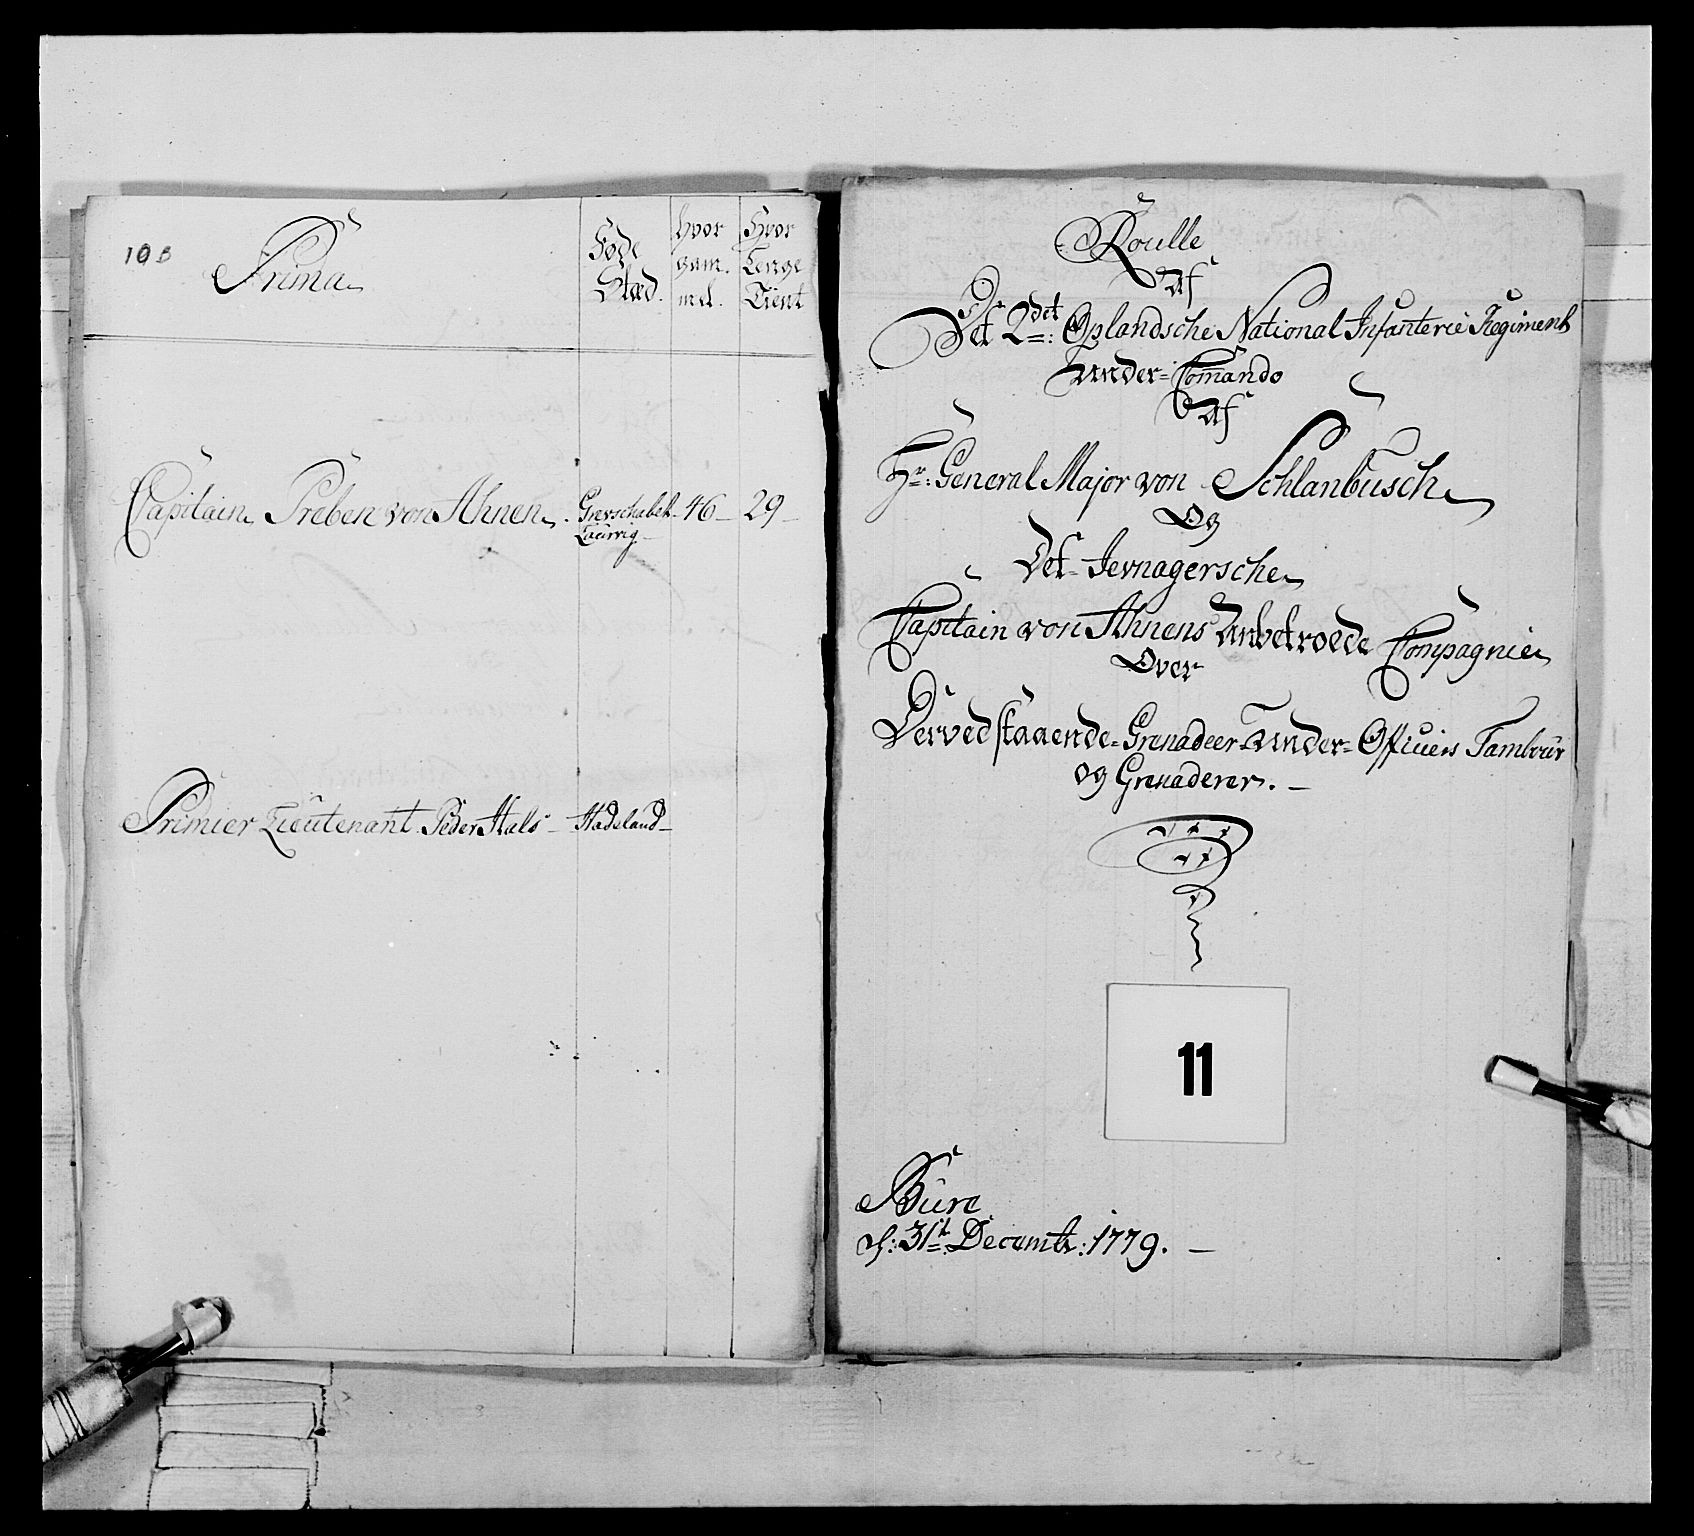 10B
Prima
Føde
Stæd.
hvor
gam.
mel.
Hvor
Lenge
Tient
Capitain Preben von Ahnen. Grevschabet 46 – 29 –
Laurvig –
Primier Lieutenant Peder Hals – Hadeland –
Roulle
Af
Det 2det: Oplandsche National Infanterie Regiment
Under-Comando
Af
Hr: General Major von Schlanbusch
Og
Det Jevnagersche
Capitain von Ahnens Anbetroede Compagnie
Over
Derved staaende-Grenadeer-Under-Officiers Tambour
og Grenaderer. –
11
Bure
d: 31t: Decembr: 1779. –